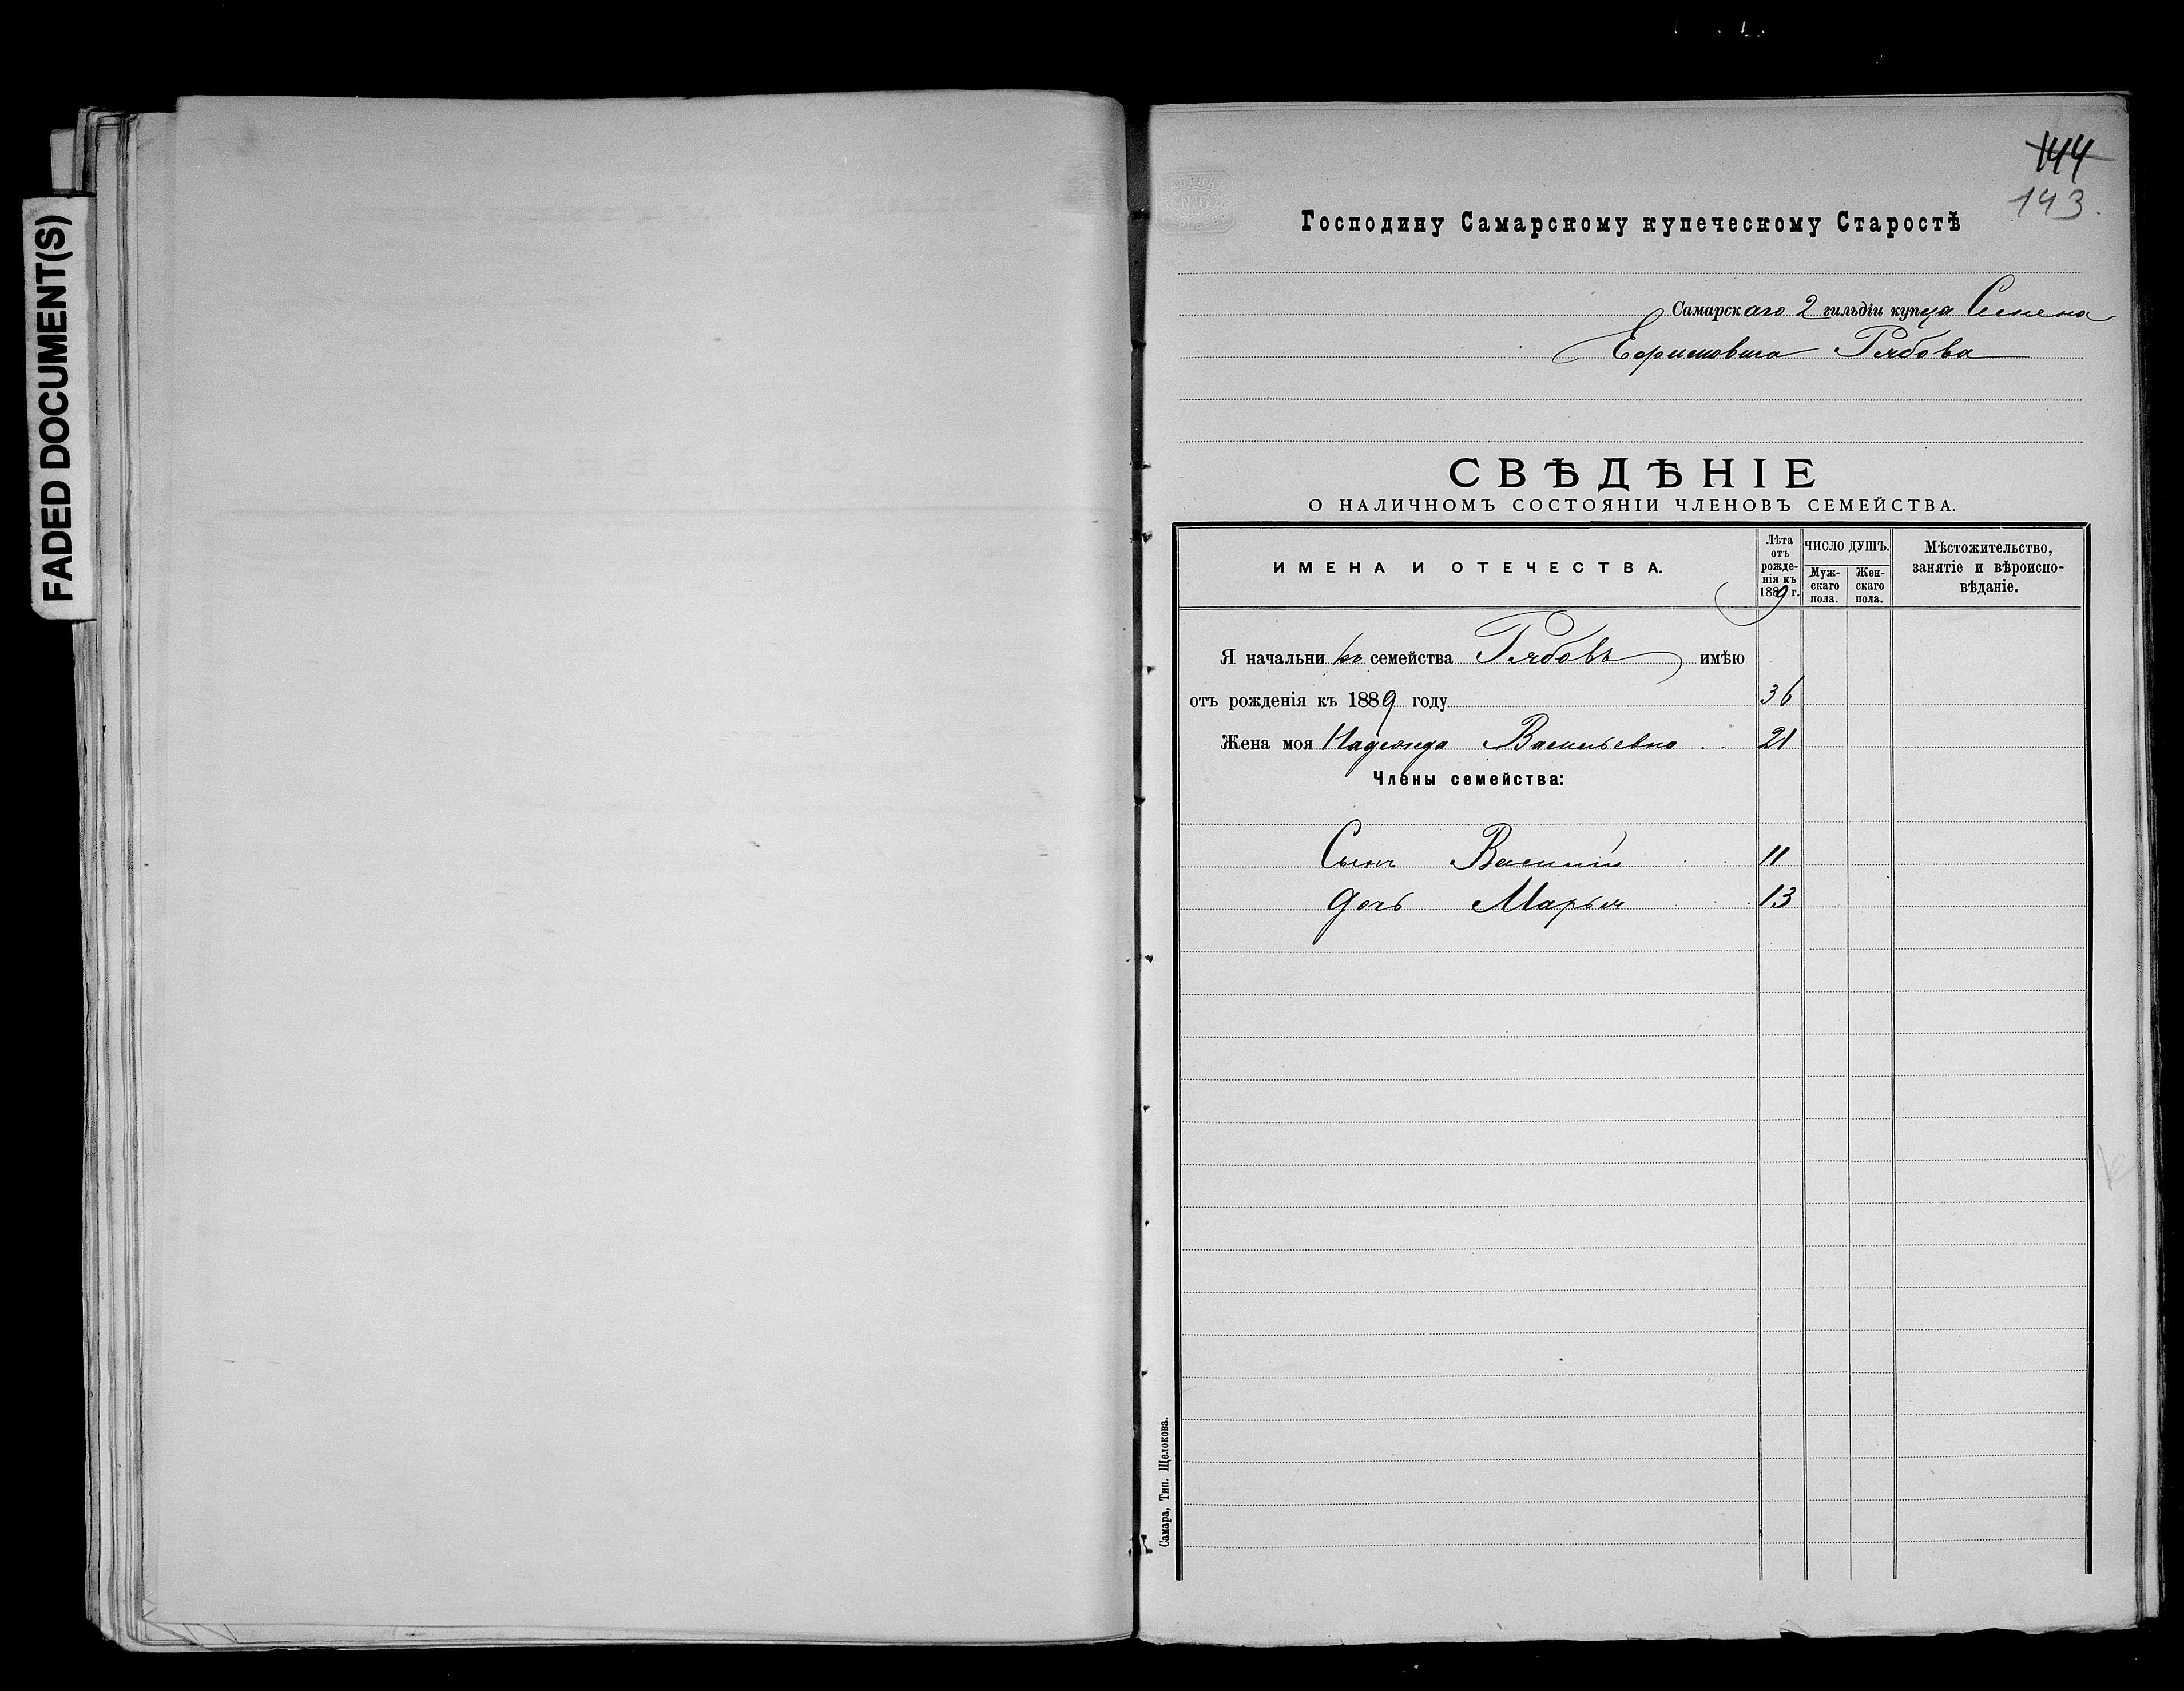 FADED DOCUMENT(S)
144
143.
Господину Самарскому купеческому Старостѣ
Самарскаго 2 гильдіи купца Семена
Ефимовича Рябова
СВѢДѢНІЕ
О НАЛИЧНОМЪ СОСТОЯНІИ ЧЛЕНОВЪ СЕМЕЙСТВА.
ИМЕНА И ОТЕЧЕСТВА.
Лѣта
отъ
рожде-
нія къ
1889 г.
ЧИСЛО ДУШЪ.
Муж-
скаго
пола.
Жен-
скаго
пола.
Мѣстожительство,
занятіе и вѣроиспо-
вѣданіе.
Я начальникъ семейства Рябовъ имѣю
отъ рожденія къ 1889 году 36
Жена моя Надежда Васильевна 21
Члены семейства:
Сынъ Василій 11
дочь Марья 13
Самара, Тип. Щелокова.